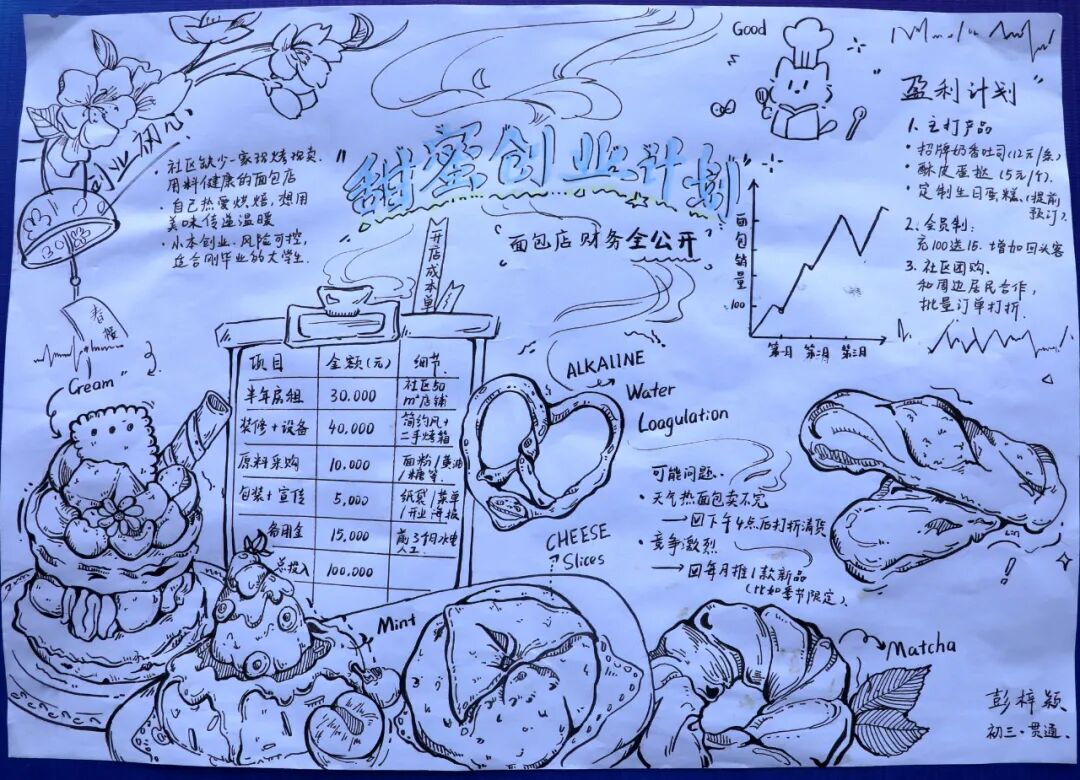 "甜蜜创业计划"
面包店 财务全公开
创业初心:
• 社区缺少一家现烤现卖.
用料健康的面包店
• 自己热爱烘焙,想用
美味传递温暖
• 小本创业、风险可控,
适合刚毕业的大学生.
春樱
开店成本单
项目 金额(元) 细节.
半年房租 30.000 社区50m²店铺
装修+设备 40,000 简约风+二手烤箱
原料采购 10,000 面粉/黄油/糖等.
包装+宣传 5,000 纸袋/菜单/开业海报
备用金 15,000 前3个月水电人工
总投入 100,000
Good
面包销量
100
第一月 第二月 第三月
盈利计划
1. 主打产品
• 招牌奶香吐司(12元/条)
• 酥皮蛋挞 (5元/个)
• 定制生日蛋糕.(提前
预订)
2. 会员制:
充100送15. 增加回头客
3. 社区团购.
和周边居民合作,
批量订单打折.
Cream
ALKAIINE
Water
Loagulation
可能问题.
• 天气热面包卖不完
→回下午4点后打折清货
• 竞争激烈
→回每月推1款新品
(比如季节限定).
CHEESE
Slices
Mint
Matcha
彭梓颖
初三·贯通.